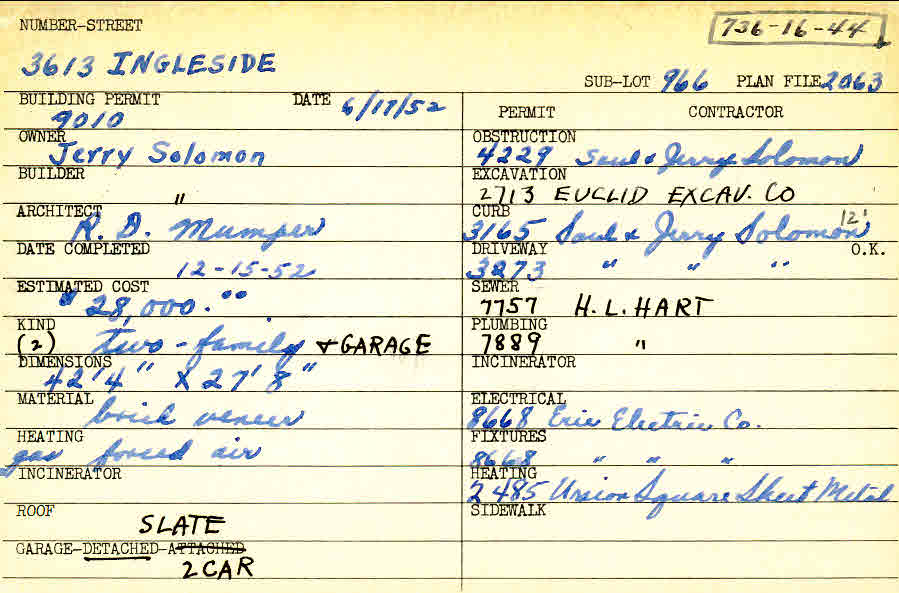 NUMBER-STREET
736-16-44
3613 INGLESIDE
SUB-LOT 966 PLAN FILE 2063
BUILDING PERMIT DATE 6/17/52
9010
PERMIT CONTRACTOR
OWNER
Jerry Solomon
OBSTRUCTION
4229 Saul & Jerry Solomon
BUILDER
"
EXCAVATION
2713 EUCLID EXCAV. CO
ARCHITECT
R. D. Mumper
CURB
3165 Saul & Jerry Solomon 12'
DATE COMPLETED
12-15-52
DRIVEWAY O.K.
3273 " " "
ESTIMATED COST
" 28,000.""
SEWER
7757 H. L. HART
KIND
(2) two-family & GARAGE
PLUMBING
7889 "
DIMENSIONS
42'4" X 27'8"
INCINERATOR
MATERIAL
brick veneer
ELECTRICAL
8668 Erie Electric Co.
HEATING
gas forced air
FIXTURES
8668 " " "
INCINERATOR
HEATING
2485 Union Square Sheet Metal
ROOF
SLATE
SIDEWALK
GARAGE-DETACHED-ATTACHED
2 CAR